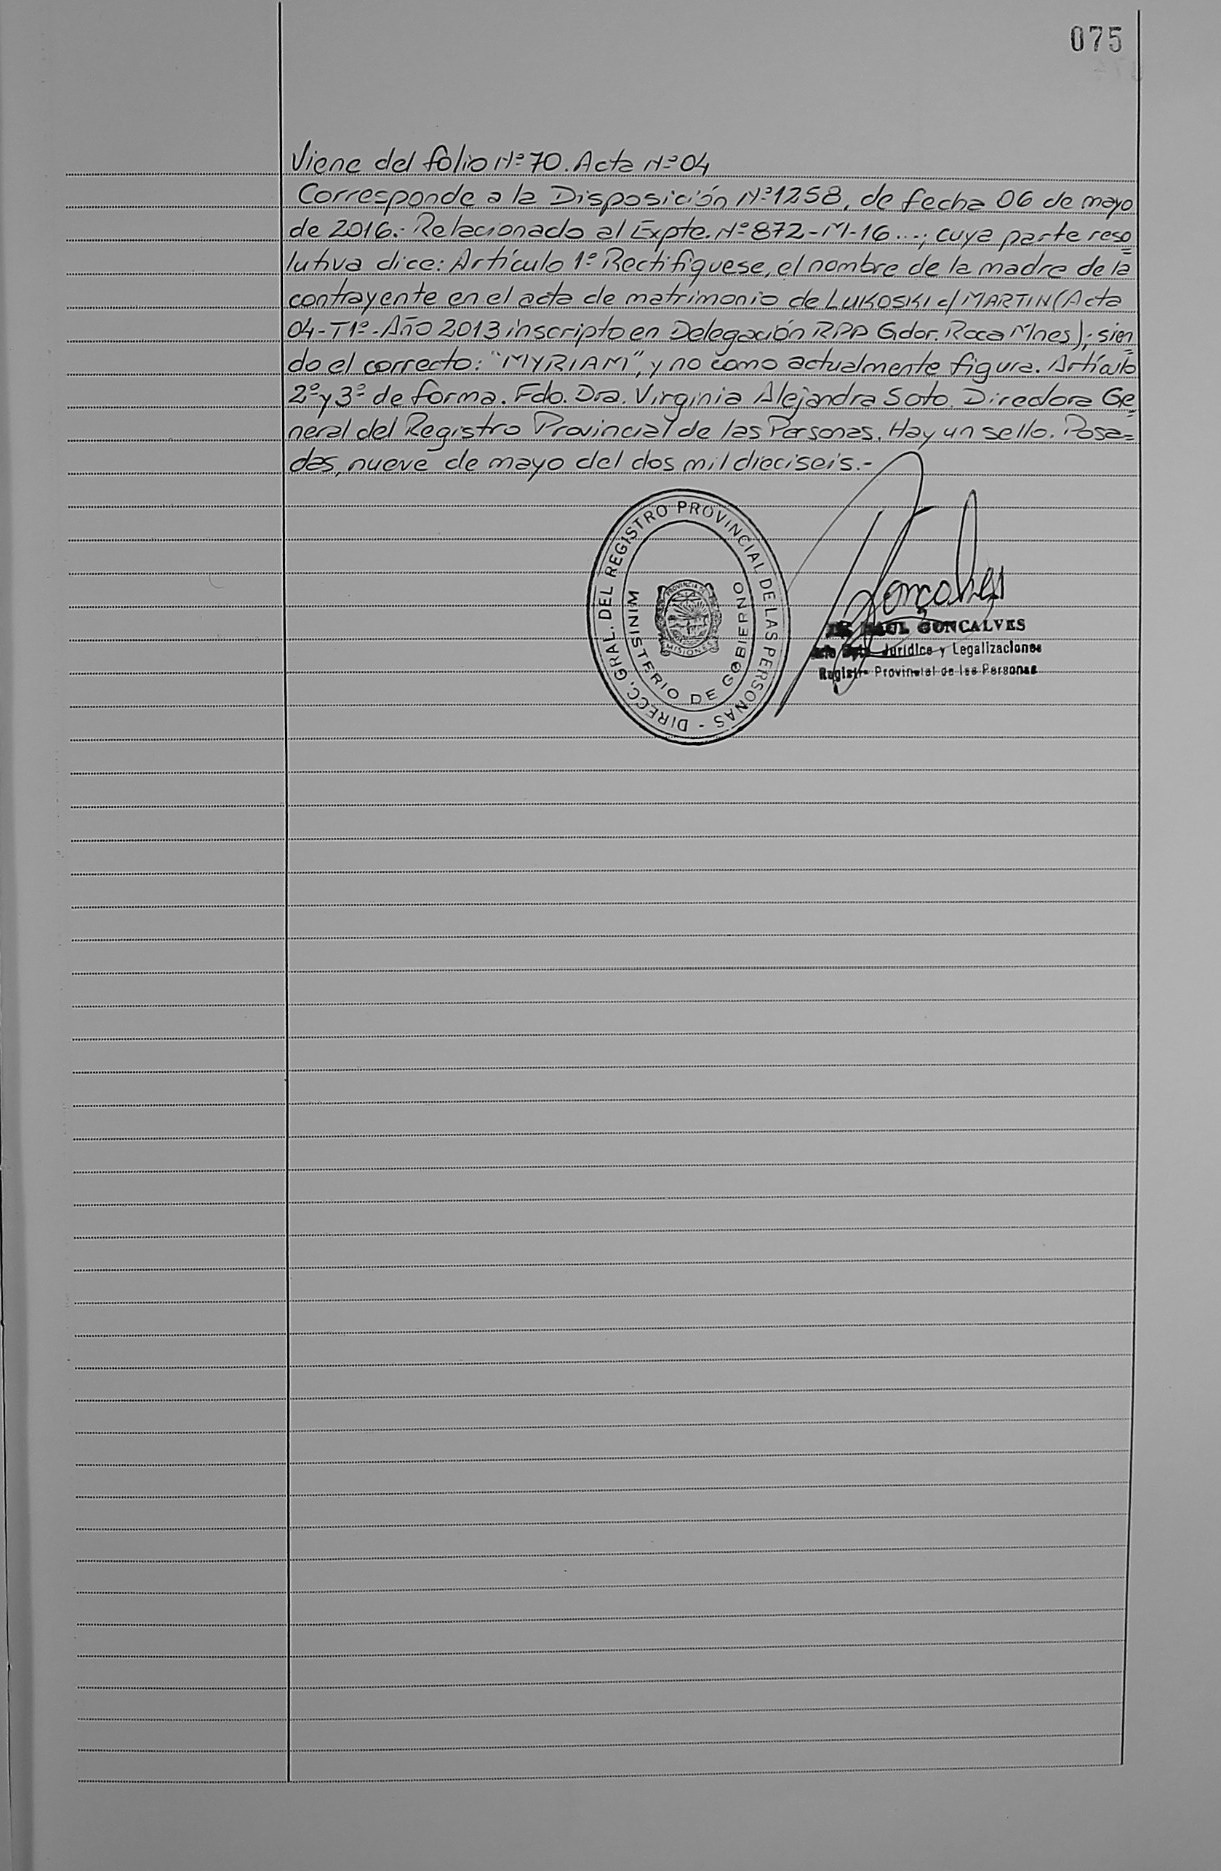 075
Viene del folio Nº 70. Acta Nº 04
Corresponde a la Disposición Nº 1258, de fecha 06 de mayo
de 2016.- Relacionado al Expte. Nº 872-M-16...; cuya parte reso
lutiva dice: Artículo 1º Rectifíquese, el nombre de la madre de la
contrayente en el acta de matrimonio de LUKOSKI c/ MARTIN (Acta
04-T1º-Año 2013 inscripto en Delegación RPP Gdor. Roca Mnes); sien
do el correcto: "MYRIAM", y no como actualmente figura. Artículo
2º y 3º de forma. Fdo. Dra. Virginia Alejandra Soto. Directora Ge
neral del Registro Provincial de las Personas. Hay un sello. Posa=
das, nueve de mayo del dos mil dieciseis.-
DIRECC. GRAL. DEL REGISTRO PROVINCIAL DE LAS PERSONAS -
MINISTERIO DE GOBIERNO
PROVINCIA
MISIONES
Gonçalves
RAUL GONCALVES
Jurídica y Legalizaciones
Registro Provincial de las Personas